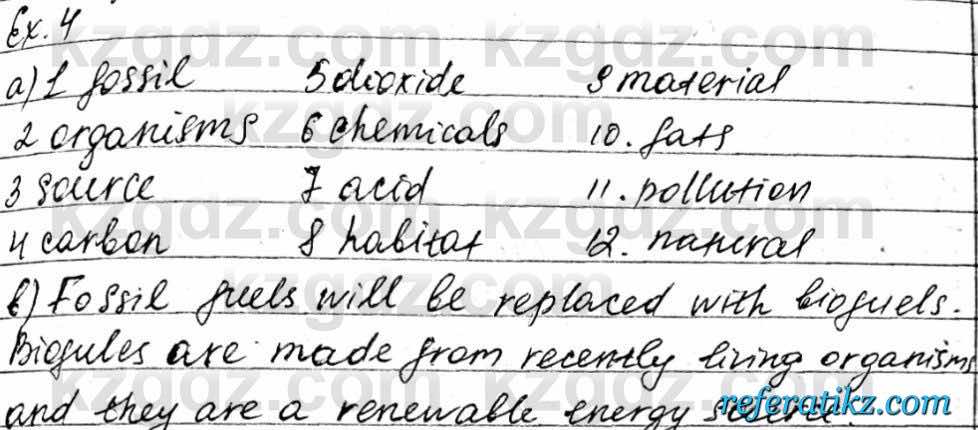 Ex. 4
a) 1 fossil 5 dioxide 9 material
2 organisms 6 chemicals 10. fats
3 source 7 acid 11. pollution
4 carbon 8 habitat 12. natural
b) Fossil fuels will be replaced with biofuels.
Biofules are made from recently living organism
and they are a renewable energy source.
kzgdz.com kzgdz.com
kzgdz.com kzgdz.com
kzgdz.com kzgdz.com
referatikz.com